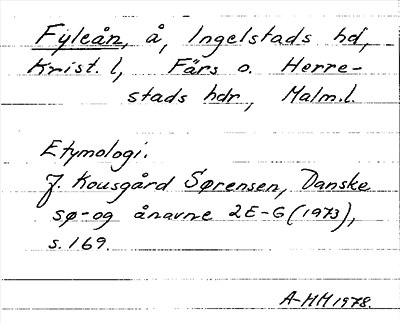 Fyleån, å, Ingelstads hd,
Krist. l, Färs o. Herre-
stads hdr, Malm.l.
Etymologi.
J. Kousgård Sørensen, Danske
sø- og ånavne 2E-G (1973),
s. 169.
A-MH 1978.